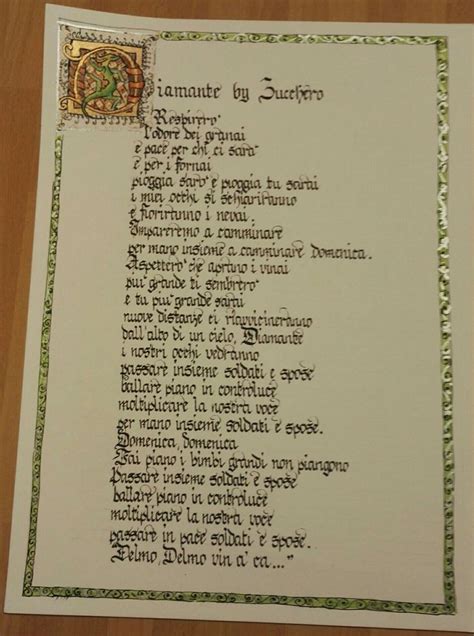 Diamante by Zucchero
Respirerò
l'odore dei granai
e pace per chi ci sarà
e per i fornai
pioggia sarò e pioggia tu sarai
i miei occhi si schiariranno
e fioriranno i nevai.
Impareremo a camminare
per mano insieme a camminare domenica.
Aspetterò che aprano i vinai
più grande ti sembrerò
e tu più grande sarai
nuove distanze ci riavvicineranno
dall'alto di un cielo, Diamante
i nostri occhi vedranno
passare insieme soldati e spose
ballare piano in controluce
moltiplicare la nostra voce
per mano insieme soldati e spose.
Domenica, domenica
Fai piano i bimbi grandi non piangono
Passare insieme soldati e spose
ballare piano in controluce
moltiplicare la nostra voce
passare in pace soldati e spose.
Delmo, Delmo vin a' ca..."